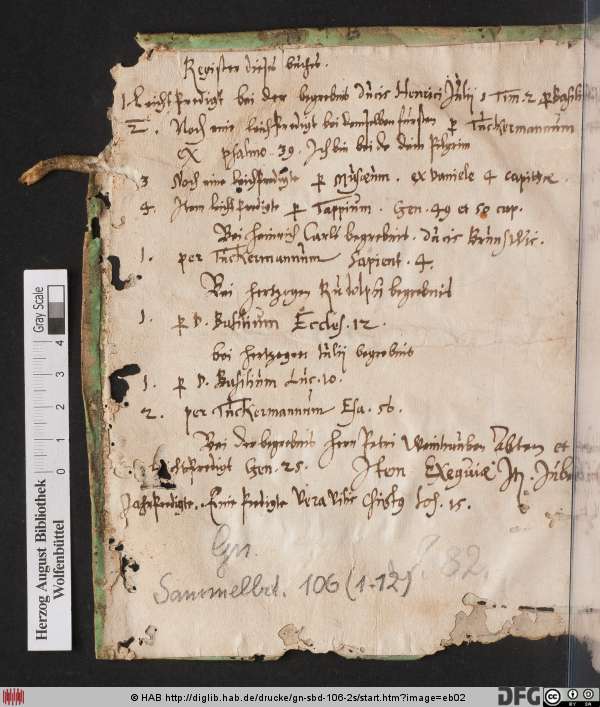 Register dieses buches.
1. Leichpredigt bei der begrebnis Ducis Henrici Julij 1 Tim. 2 per Basilium
2. Noch eine leichpredigt bei demselben fursten per Tuckermannum
ex psalmo 39. Ich bin bei dir dein Pilgrim
3 Noch eine leichpredigte per Musæum. ex Daniele 4 capitte.
4. Item leichpredigte per Tappium. Gen. 49 et 50 cap.
Bei Heinrich Carls begrebnis. Ducis Brunswic.
1. per Tuckermannum Sapient. 4.
Bei hertzogen Rudolphi begrebnis
1. per D. Basilium Eccles. 12.
bei hertzogen Julij begrebnis
1. per D. Basilium Luc. 10.
2. per Tuckermannum Esa. 56.
Bei der begrebnis hern Petri Abten et
Leichpredigt Gen. 25. Item Exequiæ
Jahrpredigte. Eine predigte Vera Vitis Christus Joh. 15.
Gn.
Sammelbd. 106 (1-12)
82.
Gray Scale
0 1 2 3 4
Herzog August Bibliothek
Wolfenbüttel
© HAB http://diglib.hab.de/drucke/gn-sbd-106-2s/start.htm?image=eb02
DFG
CC BY SA